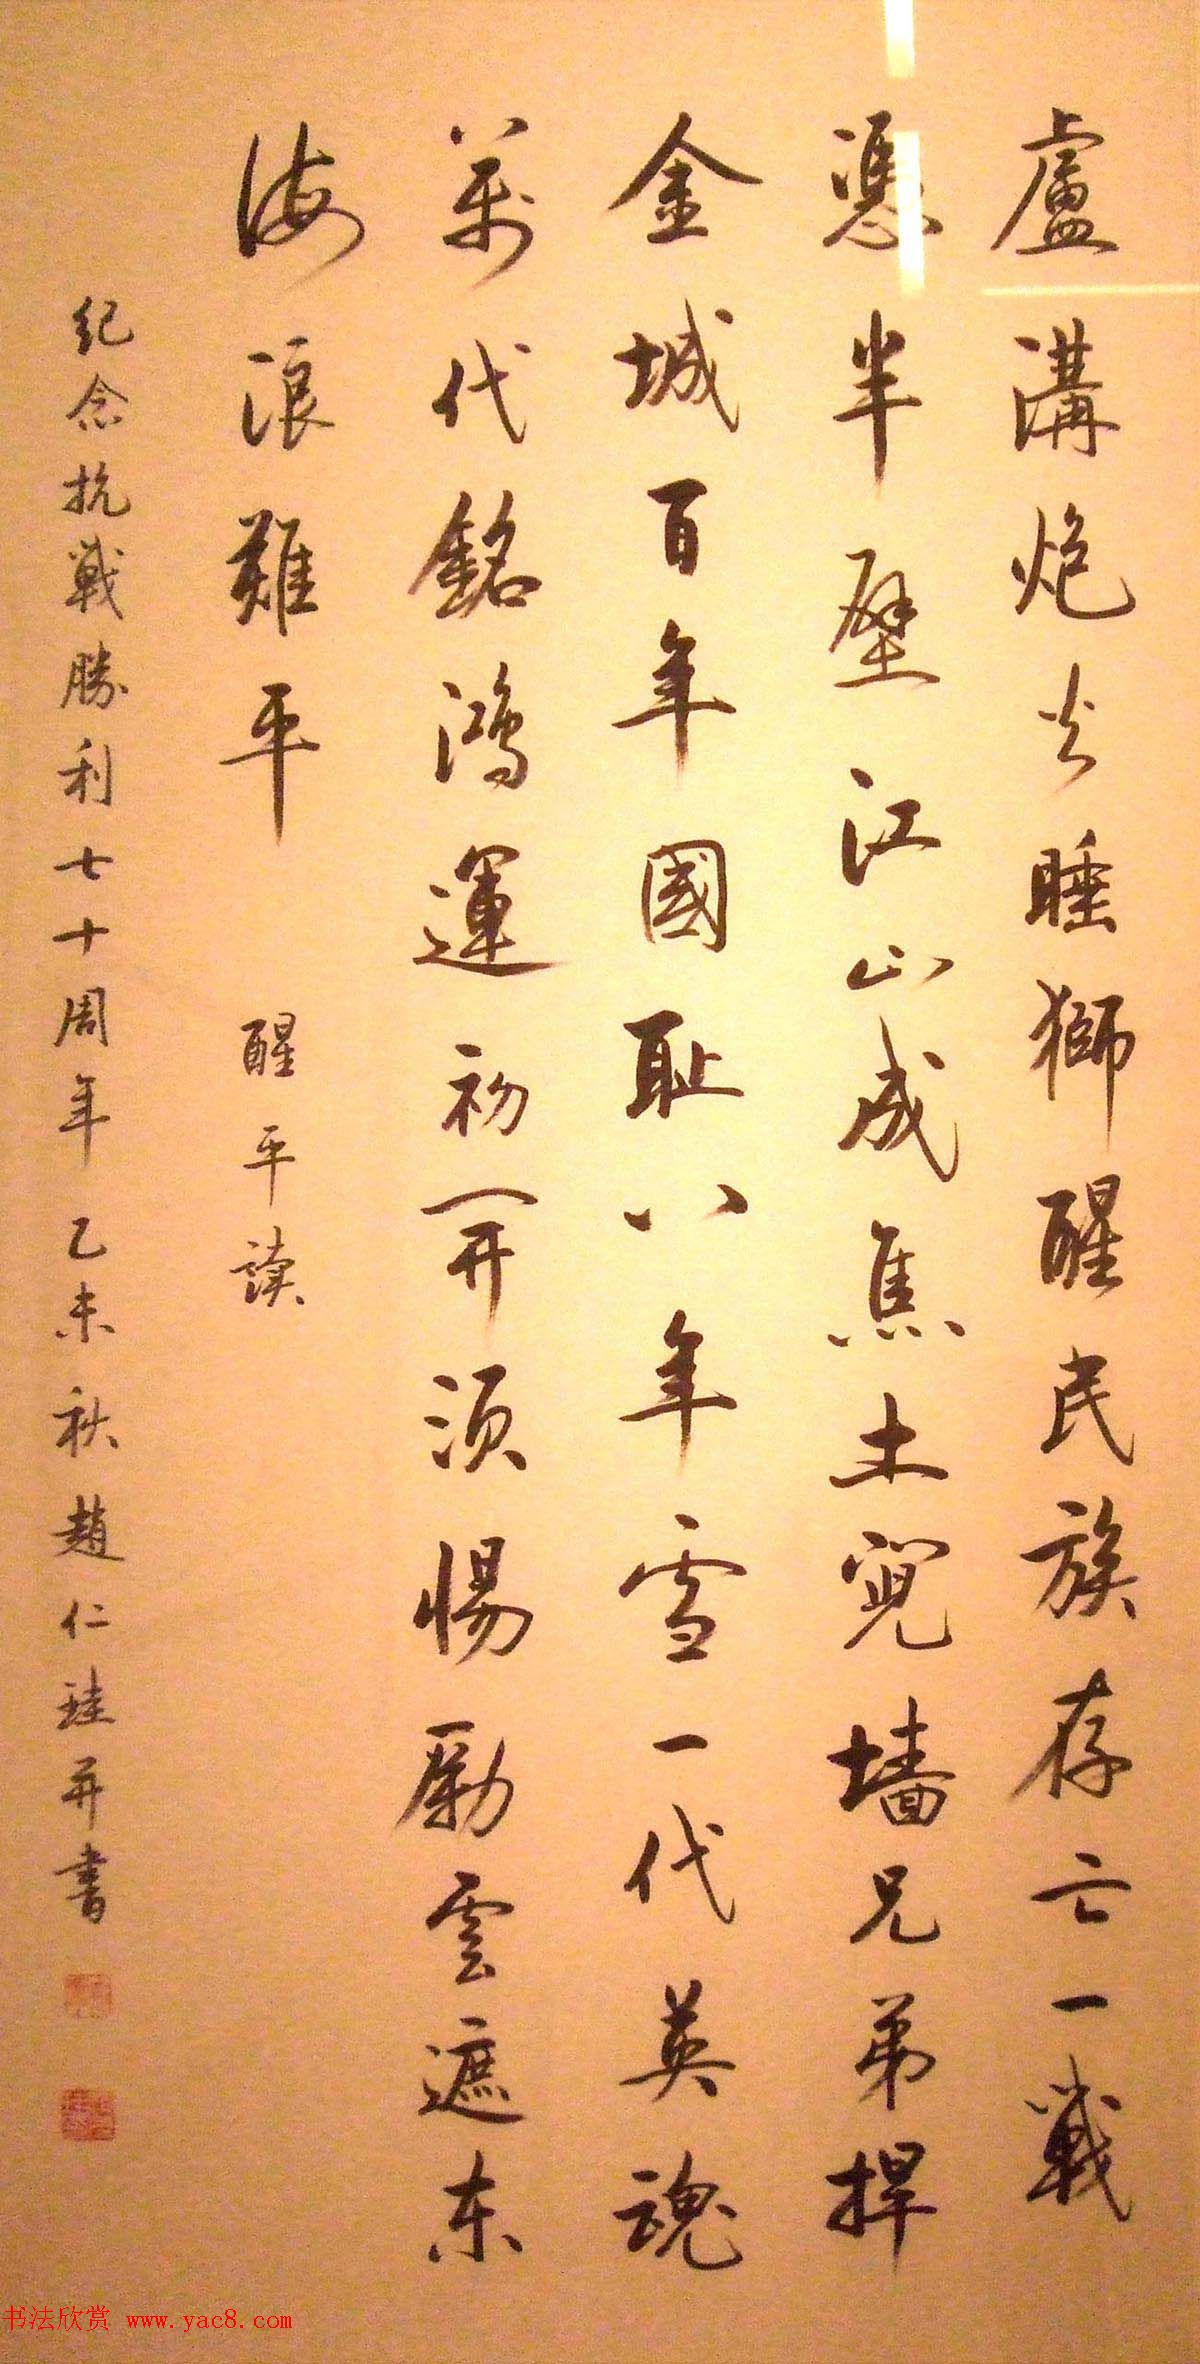 盧溝炮火睡獅醒民族存亡一戰
憑半壁江山成焦土鬩墻兄弟捍
金城百年國恥八年雪一代英魂
萬代銘鴻運初開須惕勵雲遮东
海浪難平
醒平读
纪念抗戰勝利七十周年乙未秋趙仁珪并書
书法欣赏 www.yac8.com